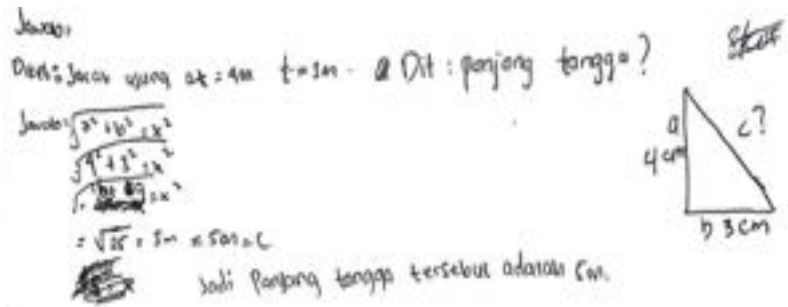 Jawab:
Diket: Jarak ujung at = 4m t = 3m. Dit : panjang tangga?
Jawab: √a² + b² = x²
√4² + 3² = x²
= x²
= √25 = 5m = 5m = c
Jadi Panjang tangga tersebut adalah 5m.
a
4 cm
c?
b 3 cm